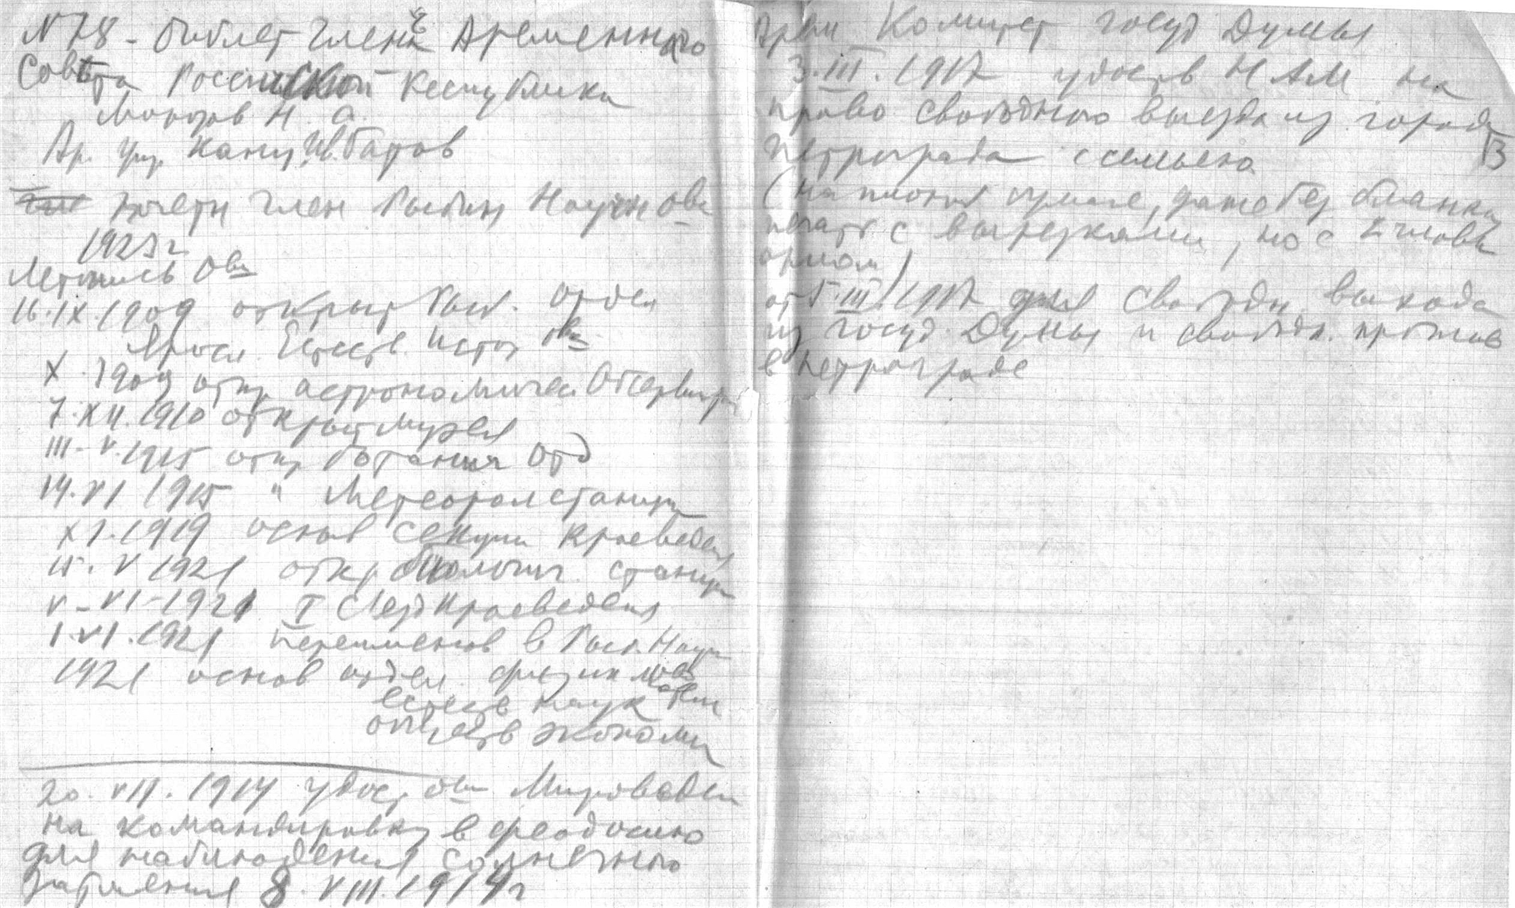 N 78 - билет члена Временного
Совета Российской Республики
Морозов Н. а.
1923 г
Летопись Ова
16.IX.1909 открыт Рыб. отдел
Яросл. Естеств. Истор Ова
X.1909 откр астрономическ Обсерватор
7.XII.1910 открыт музея
III-V.1915 откр ботанич отд
14.VI 1915 " Метеорол станции
XI.1919 основ секции краеведения
15.V 1921 откр биологич. станции
V-VI-1921 I Съезд Краеведения
1.VI.1921 переименов в Рыб. Научн
1921 основ отдел физик мат
естеств наук
обществ экономи
20.VII.1914 удост ова Мироведен
на командировку в Феодосию
для наблюдения солнечного
затмения 8.VIII.1914 г
Врем Комитет госуд Думы
3.III.1917 удостов НАМ на
право свободного выезда из города
Петрограда с семьею
(на плохой бумаге, даже без бланка
печать с вырезками, но с
орлом)
от 5.III.1917 для свободн выхода
из Госуд. Думы и свободн. прожив
в Петрограде
13